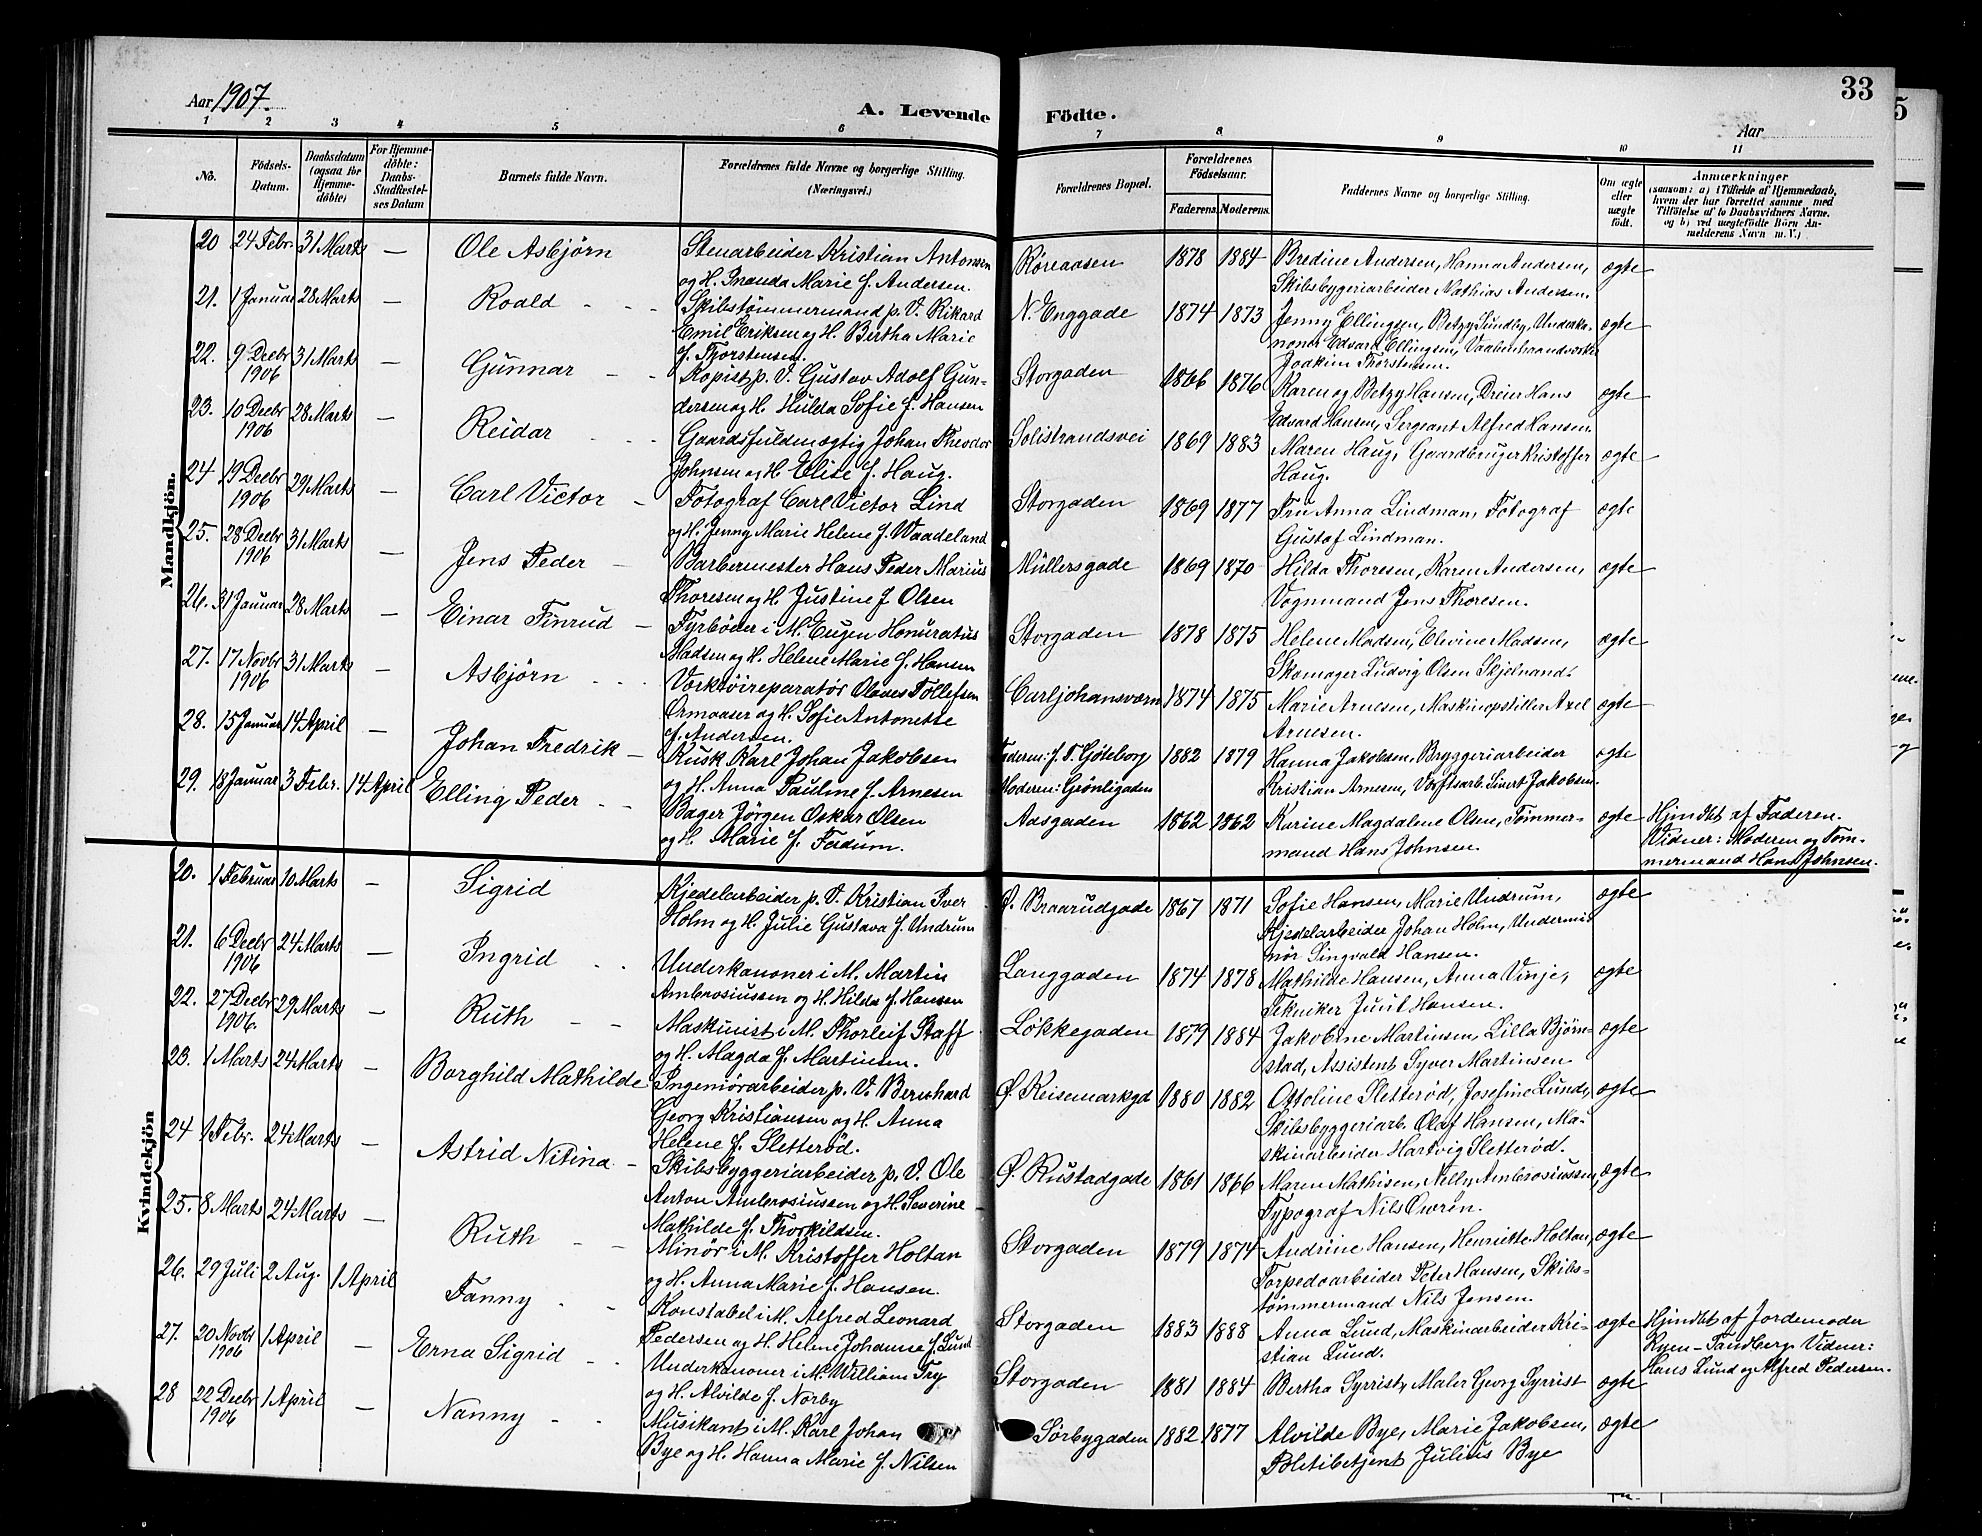 33
Aar 1907.
A. Levende Födte.
Aar
1 2 3 4 5 6 7 8 9 10 11
No. Födsels-Datum. Daabsdatum (ogsaa for Hjemme-døbte) For Hjemme-døbte: Daabs-Stadfæstel-ses Datum Barnets fulde Navn. Forældrenes fulde Navne og borgerlige Stilling. (Næringsvei.) Forældrenes Bopæl. Forældrenes Födselsaar. Faderens. Moderens. Faddernes Navne og borgerlige Stilling. Om ægte eller uægte födt. Anmærkninger (saasom: a) i Tilfælde af Hjemmedaab, hvem der har forrettet samme med Tilföielse af to Daabsvidners Navne, og b) ved uægtefödte Börn An-melderens Navn m. V.)
Mandkjön.
20 24 Febr. 31 Marts — Ole Asbjörn Stenarbeider Kristian Antonsen Røreaasen 1878 1884 Bredine Andersen, Hanna Andersen, ægte
og H. Marie f. Andersen. Skibsbyggeriarbeider Mathias Andersen.
21. 1 Januar 28 Marts — Roald Skibstømmermand p. V. Rikard N. Enggade 1874 1873 Jenny Ellingsen, Betzy Sundby, Underka- ægte
Emil Eriksen og H. Bertha Marie noner Edvard Ellingsen, Vaabenhaandverker
f. Thorstensen. Joakim Thorstensen.
22. 9 Decbr 1906 31 Marts — Gunnar Kopist p. V. Gustav Adolf Gun- Storgaden 1866 1876 Karen og Betzy Hansen, Dreier Hans ægte
dersen og H. Hulda Sofie f. Hansen Edvard Hansen, Sergeant Alfred Hansen.
23. 10 Decbr 1906 28 Marts — Reidar Gaardsfuldmægtig Johan Theodor Solistrandsvei 1869 1883 Maren Haug, Gaardbruger Kristoffer ægte
Johnsen og H. Elise f. Haug. Haug.
24 19 Decbr 1906 29 Marts — Carl Victor Fotograf Carl Victor Lind Storgaden 1869 1877 Fru Anna Lindman, Fotograf ægte
og H. Jenny Marie Helene f. Vaadeland Gustaf Lindman.
25. 28 Decbr 1906 31 Marts — Jens Peder Barbermester Hans Peder Marius Müllersgade 1869 1870 Hilda Thoresen, Karen Andersen, ægte
Thoresen og H. Justine f. Olsen Vognmand Jens Thoresen.
26. 31 Januar 28 Marts — Einar Finrud Fyrbøder i M. Eugen Honuratus Storgaden 1878 1875 Helene Madsen, Elevine Madsen, ægte
Madsen og H. Helene Marie f. Hansen Skomager Ludvig Olsen Skjelnand.
27. 17 Novbr 1906 31 Marts — Asbjörn Værktöireparatör Olaves Tollefsen Carljohansværn 1874 1875 Marie Arnesen, Maskinopstiller Axel ægte
Ormaaser og H. Sofie Antonette Arnesen.
f. Andersen.
28. 15 Januar 14 April — Johan Fredrik Kusk Karl Johan Jakobsen Faderen: f. T. Göteborg 1882 1879 Hanna Jakobsen, Bryggeriarbeider ægte
og H. Anna Pauline f. Arnesen Moderen: Grønligaden Kristian Arnesen, Værftsarb. Sivert Jakobsen.
29. 18 Januar 3 Febr. 14 April Elling Peder Bager Jörgen Oskar Olsen Aasgaden 1862 1862 Karine Magdalene Olsen, Tømmer- ægte Hjmdbt af Faderen.
og H. Marie f. Fadum. mand Hans Johnsen. Vidner: Moderen og Töm-
mermand Hans Johnsen.
Kvindekjön
20. 1 Februar 10 Marts — Sigrid Kjedelarbeider p. V. Kristian Iver Ø. Braarudgade 1867 1871 Sofie Hansen, Marie Undrum, ægte
Holm og H. Julie Gustava f. Undrum Kjedelarbeider Johan Holm, Undermi-
nör Singvald Hansen.
21. 6 Decbr 1906 24 Marts — Ingrid Underkanoner i M. Martin Langgaden 1874 1878 Mathilde Hansen, Anna Vinje, ægte
Ambrosiussen og H. Hilda f. Hansen Tekniker Juul Hansen.
22. 27 Decbr 1906. 29 Marts — Ruth Maskinist i M. Thorleif Staff Løkkegaden 1879 1884 Jakobine Martinsen, Lilla Bjørn- ægte
og H. Magda f. Martinsen. stad, Assistent Syver Martinsen.
23. 1 Marts 24 Marts — Borghild Mathilde Ingeniörarbeider p. V. Bernhard Ø. Keisemarkgd 1880 1882 Ottoline Sletterød, Josefine Lund, ægte
Georg Kristiansen og H. Anna Skibsbyggeriarb. Olaf Hansen, Ma-
Helene f. Sletterød. skinarbeider Hartvig Sletterød.
24 1 Febr. 24 Marts — Astrid Nitina Skibsbyggeriarbeider p. V. Ole Ø. Rustadgade 1861 1866 Maren Mathisen, Nelly Ambrosiussen, ægte
Anton Ambrosiussen og H. Severine Typograf Nils Qvern.
Mathilde f. Thorkildsen.
25. 8 Marts 24 Marts — Ruth Minör i M. Kristoffer Holtan Storgaden 1879 1874 Andrine Hansen, Henriette Holtan, ægte
og H. Anna Marie f. Hansen. Torpedoarbeider Peter Hansen, Skibs-
tømmermand Nils Jensen.
26. 29 Juli 2 Aug. 1 April Fanny Konstabel i M. Alfred Leonard Storgaden 1883 1888 Anna Lund, Maskinarbeider Kri- ægte Hjmdbt af Jordemoder
Pedersen og H. Helene Johanne f. Lund stian Lund. Ryen-Tandberg. Vidner:
Hans Lund og Alfred Pedersen.
27. 20 Novbr 1906 1 April — Erna Sigrid Underkanoner i M. William Try Storgaden 1881 1884 Bertha Syrrist, Maler Georg Syrrist ægte
og H. Alvilde f. Norby
28 22 Decbr 1906 1 April — Nanny Musikant i M. Karl Johan Sørbygaden 1882 1877 Alvilde Bye, Marie Jakobsen, ægte
Bye og H. Hanna Marie f. Nilsen Politibetjent Julius Bye